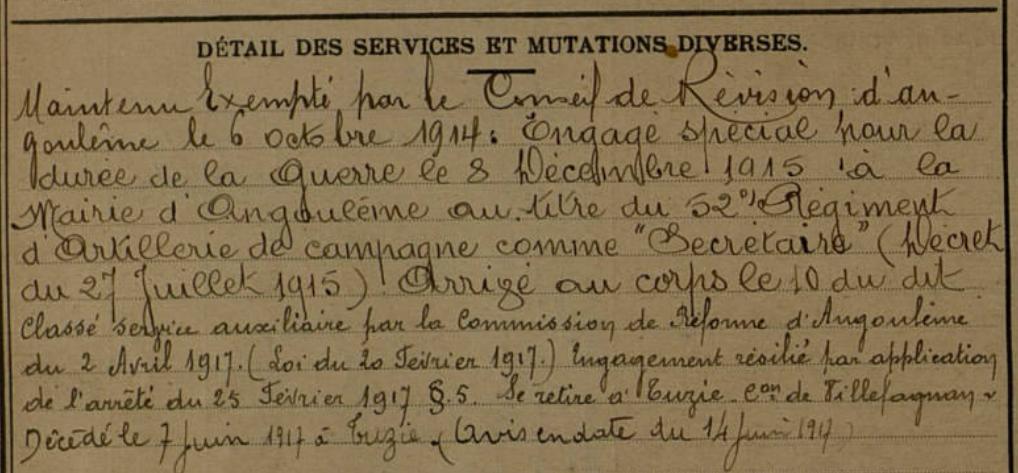 DÉTAIL DES SERVICES ET MUTATIONS DIVERSES.
Maintenu Exempté par le Conseil de Révision d'An-
goulême le 6 octobre 1914. Engagé spécial pour la
durée de la Guerre le 8 Décembre 1915 à la
Mairie d'Angoulême au titre du 52e Régiment
d'Artillerie de campagne comme "Secrétaire" (Décret
du 27 Juillet 1915) Arrivé au corps le 10 du dit
Classé service auxiliaire par la Commission de Réforme d'Angoulême
du 2 Avril 1917. (Loi du 20 Février 1917.) Engagement résilié par application
de l'arrêté du 25 Février 1917 §.5. Se retire à Tuzie con de Villefagnan
Décédé le 7 Juin 1917 à Tuzie (Avis en date du 14 Juin 1917)